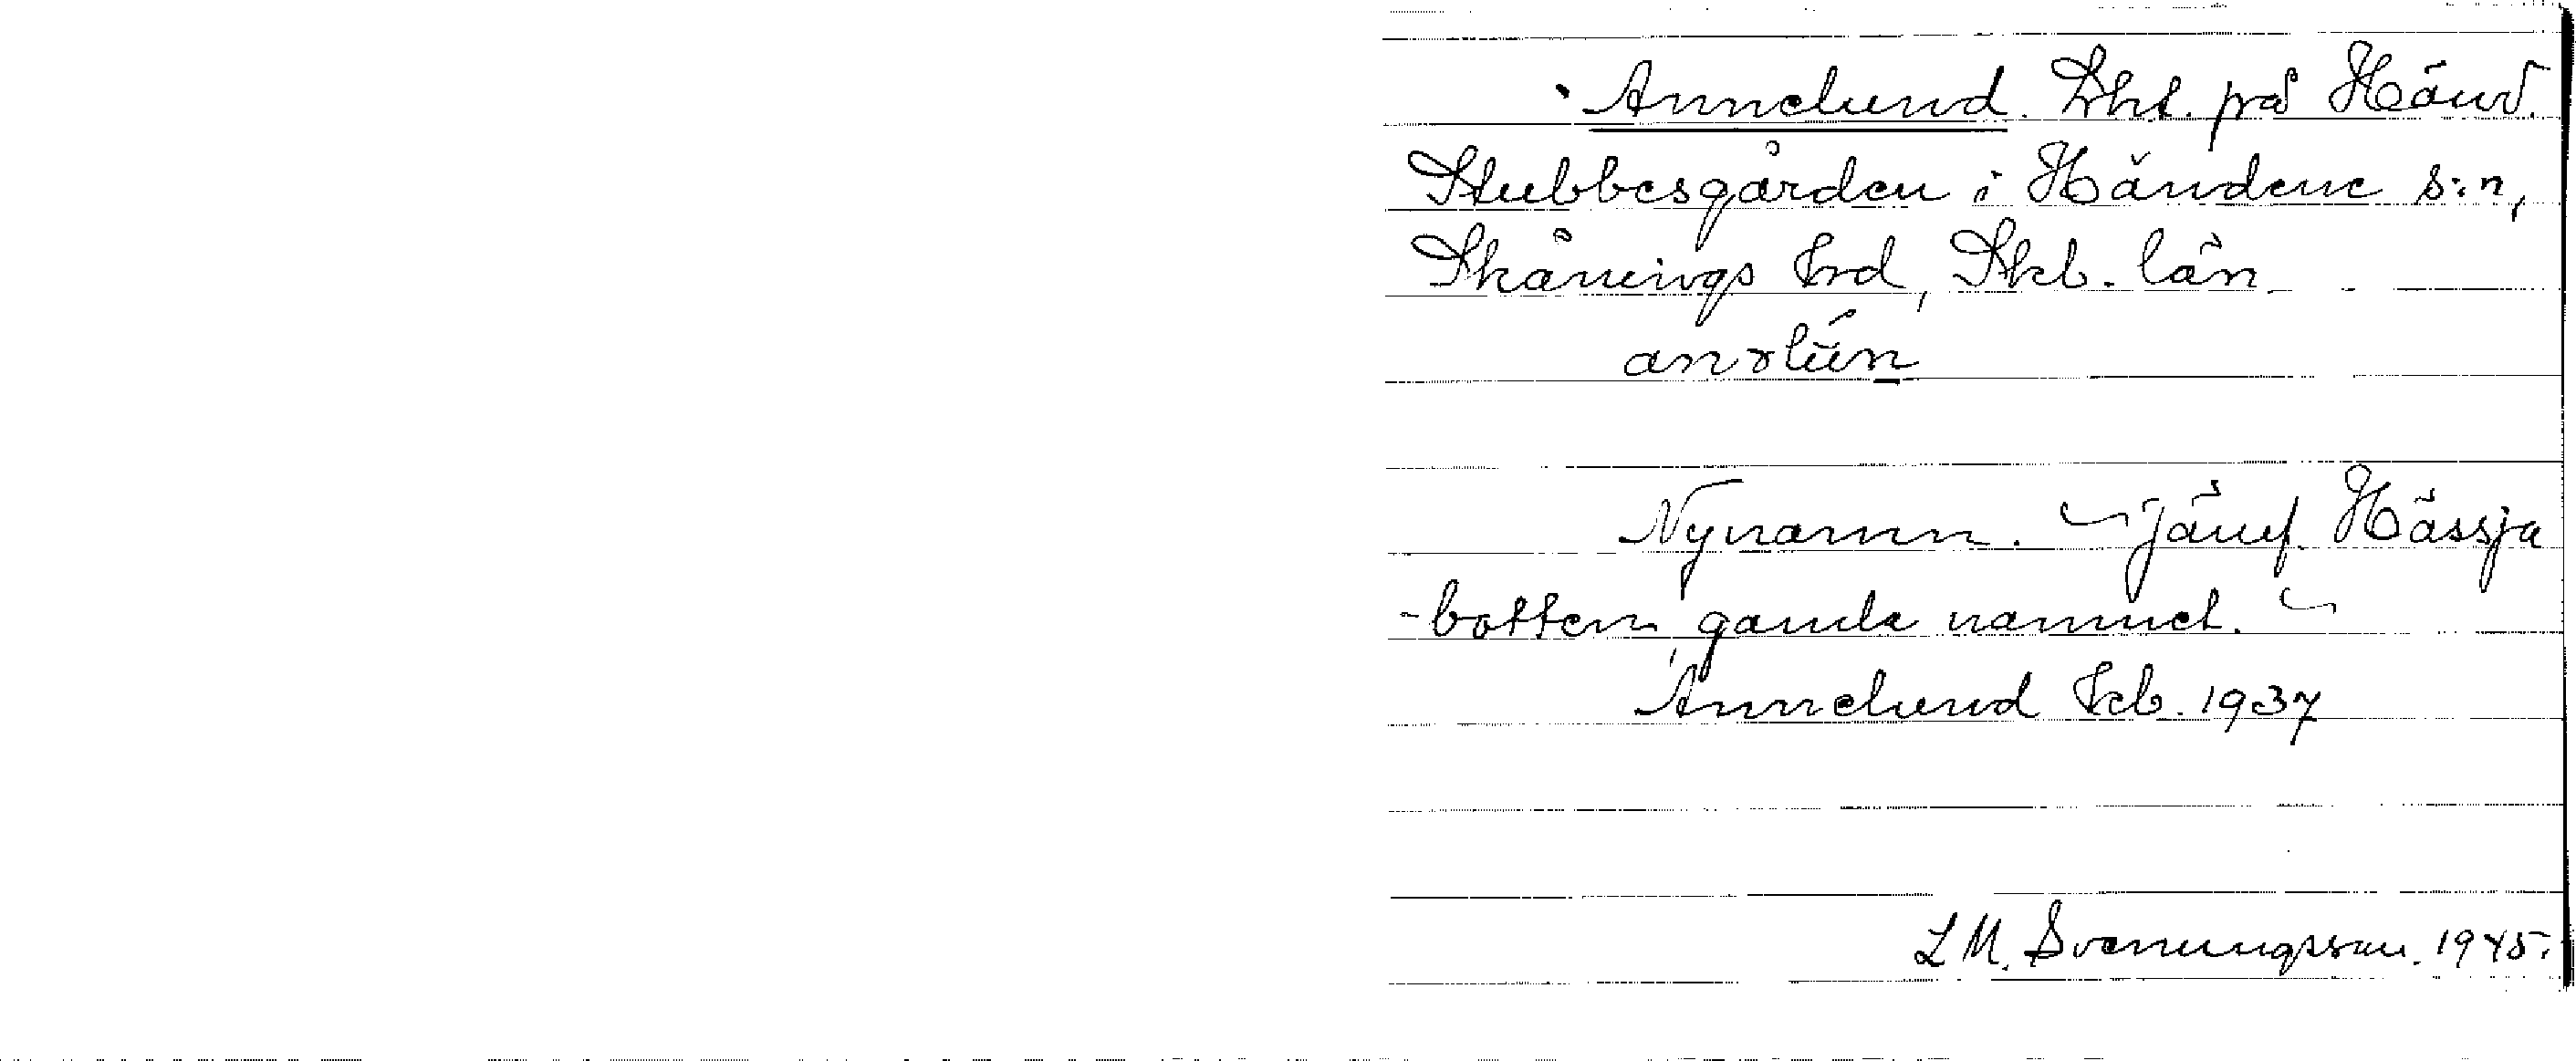 Annelund. Lht. på Händ.
Stubbesgården i Händene s:n,
Skånings hd, Skb. län
anəlún
Nynamn. ~ Jämf. Hässja
-botten, gamla namnet. ~
Annelund Feb. 1937
L M. Svenungsson. 1945.